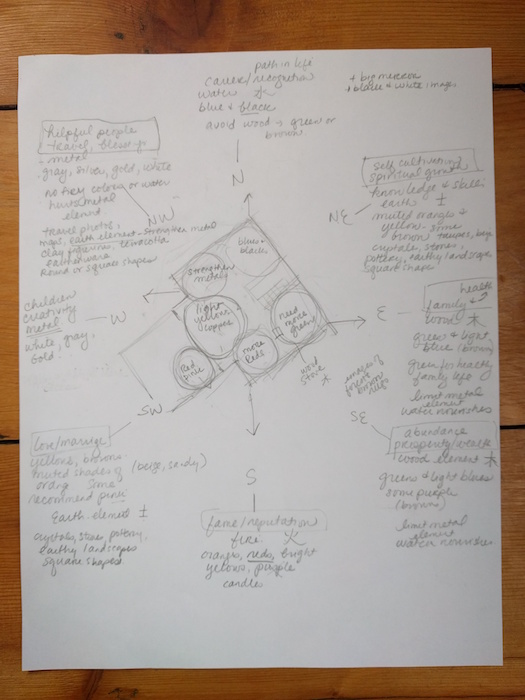 path in life
career/recognition
water 水
blue & black
avoid wood → green or
brown
+ big mirror
+ black & white images
N
helpful people
travel, blessings
- metal
- gray, silver, gold, white
no fiery colors or water
hurts metal
element
travel photos,
maps, earth element - strengthens metal
clay figurines, terracotta
earthenware
Round or square shapes
NW
self cultivation
spiritual growth
knowledge & skills
earth 土
muted oranges &
yellow. some
brown taupes, beige
crystals, stones,
pottery, earthy landscapes
square shape
NE
blue &
black
strengthen
metal
light
yellows,
copper
need more
green
more
Reds
Red
fire
wood
stove
火
children
creativity
metal
white, gray,
Gold
W
E
health
family &
wood 木
green & light
blue (brown)
green for healthy
family life
limit metal
element
water nourishes
images of
SE
abundance
prosperity/wealth
wood element 木
greens & light blues
some purple
(browns)
limit metal
element
water nourishes
SW
love/marriage
yellows, browns
muted shades of (beige, sandy)
orang some
recommend pink
Earth element 土
crystals, stones, pottery,
earthy landscapes
square shapes
S
fame/reputation
fire 火
oranges, reds, bright
yellows, purple
candles